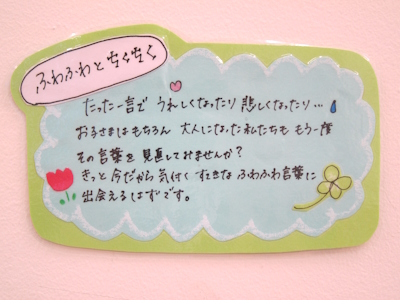 ふわふわとちくちく
たった一言で うれしくなったり 悲しくなったり…
お子さまはもちろん 大人になった私たちも もう一度
その言葉を見直してみませんか?
きっと今だから気付く すてきな ふわふわ言葉に
出会えるはずです。